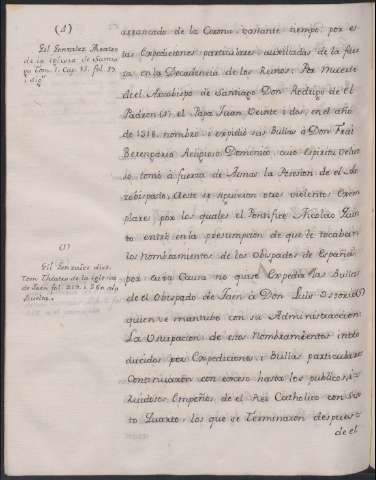 (1)
Gil Gonzalez Theatro
de la Iglesia de Santia
go Tom. 1. Cap. 13. fol. 57
i sigte
(1)
Gil Gonzalez dict.
Tom Theatro de la iglesia
de Jaén fol. 252. i 260 ala
buelta.
arrancado de la Corona, bastante tiempo, por es
tas Expediciones particulares auxiliadas de la fuer
za, en la Decadencia de los Reinos. Por Muerte
de el Arzobispo de Santiago Don Rodrigo de el
Padron (1) el Papa Juan Veinte i dos, en el año
de 1318. nombró, i expidió sus Bullas à Don Frai
Berengario Religioso Dominico, cuio Espiritu Velico
so, tomó à fuerza de Armas la Pension de el Ar
zobispado. A este se siguieron otros violentos Exem
plares por los quales el Pontifice Nicolao Quin
to entrò en la presumpcion de que le tocaban
los Nombramientos de los Obispados de España,
por cuya Causa no quiso Expedir las Bullas
de el Obispado de Jaen à Don Luis Osorio (1)
quien se mantubo con su Administraccion:
La Usurpacion de estos Nombramientos intro
ducidos por Expediciones i Bullas particulares
Continuaron con exceso hasta los publicos, i
Ruidosos Empeños de el Rei Catholico con Six
to Quarto; los que se Terminaron despues
de el